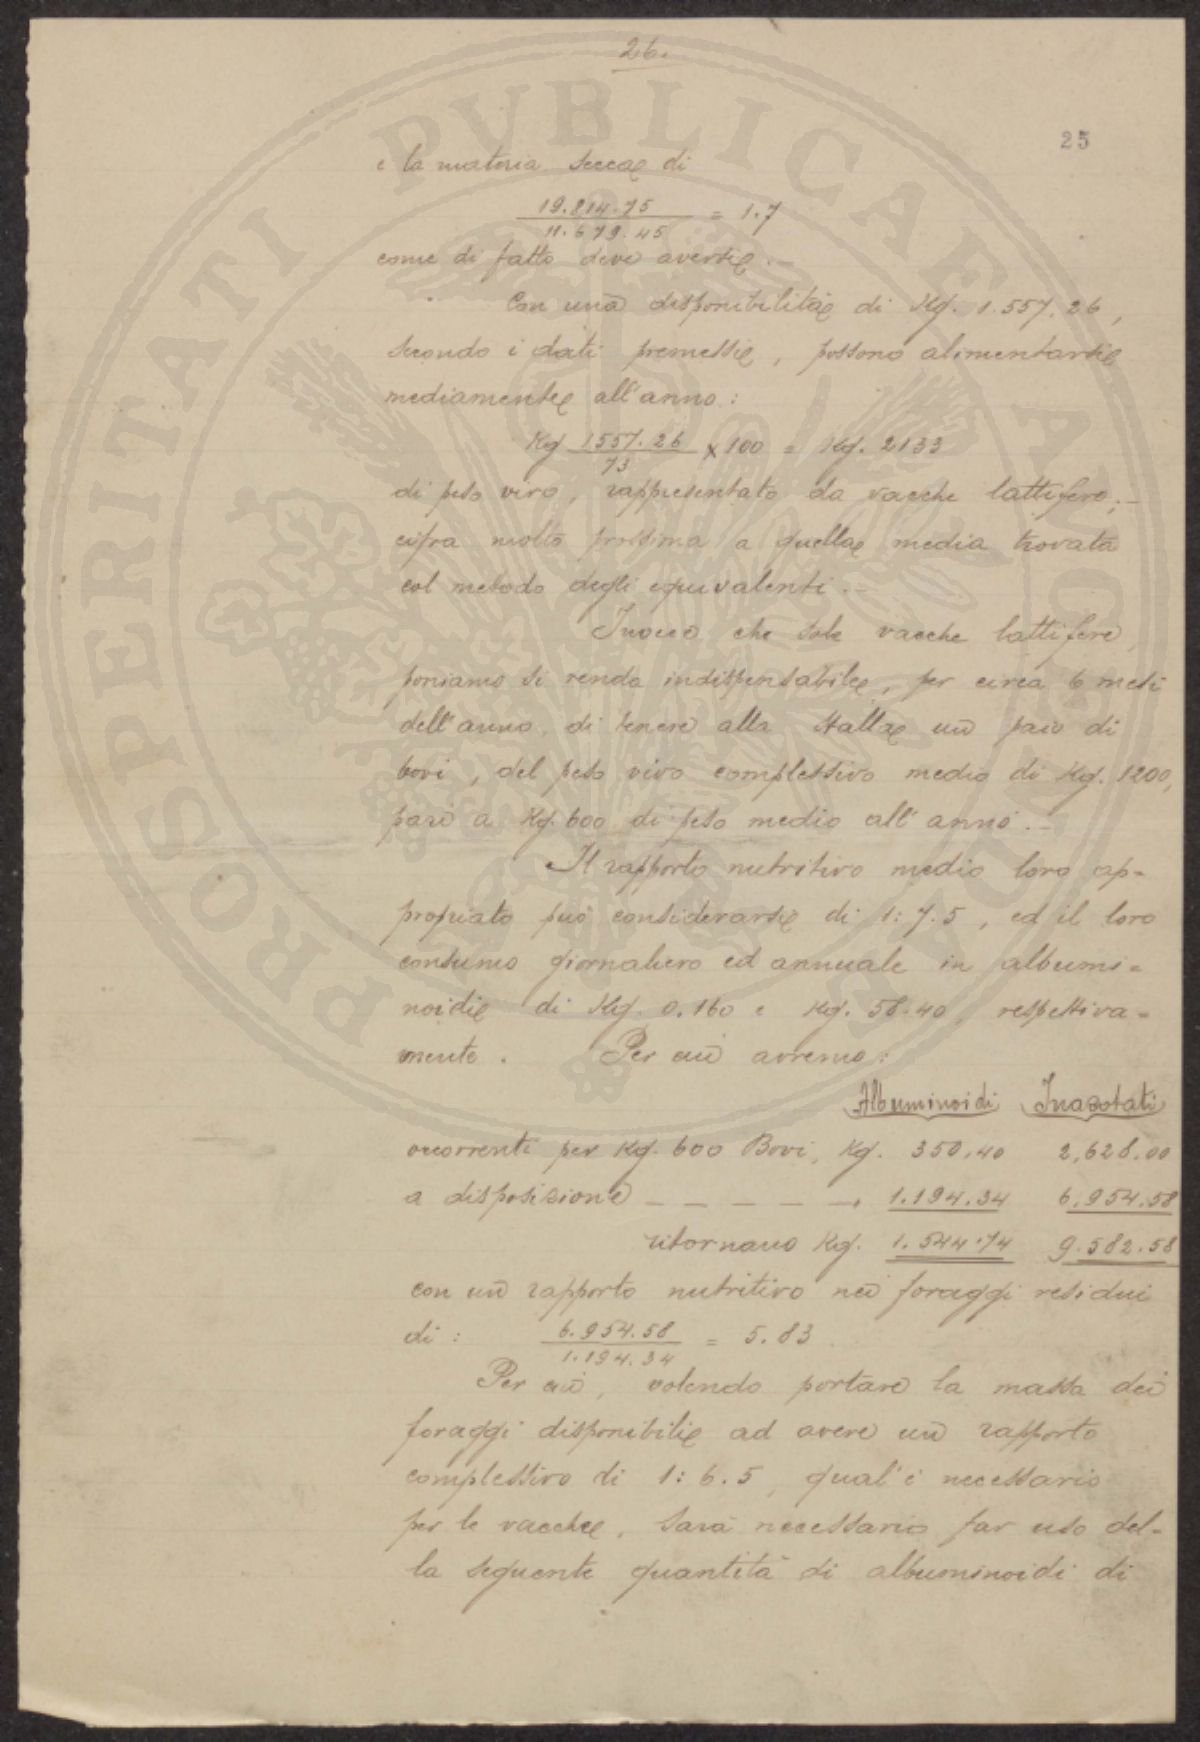 26.
25
e la materia secca di
19.814.75 / 11.679.45 = 1.7
come di fatto deve aversi.-
Con una disponibilità di Kg. 1.557.26,
secondo i dati premessi, possono alimentarsi
mediamente all'anno:
Kg 1557.26 / 73 × 100 = Kg. 2133
di peso vivo, rappresentato da vacche lattifere;-
cifra molto prossima a quella media trovata
col metodo degli equivalenti.-
Invece che sole vacche lattifere,
poniamo si renda indispensabile, per circa 6 mesi
dell'anno, di tenere alla stalla un paio di
bovi, del peso vivo complessivo medio di Kg. 1200,
pari a Kg. 600 di peso medio all'anno.-
Il rapporto nutritivo medio loro ap-
propriato può considerarsi di 1:7.5, ed il loro
consumo giornaliero ed annuale in albumi-
noidi di Kg. 0.160 e Kg. 58.40, respettiva-
mente. Per cui avremo:
Albuminoidi Inazotati
occorrenti per Kg. 600 Bovi, Kg. 350.40 2,628.00
a disposizione _ _ _ _ _ 1.194.34 6.954.58
ritornano Kg. 1.544.74 9.582.58
con un rapporto nutritivo nei foraggi residui
di: 6.954.58 / 1.194.34 = 5.83
Per cui, volendo portare la massa dei
foraggi disponibili ad avere un rapporto
complessivo di 1:6.5, qual'è necessario
per le vacche, sarà necessario far uso del-
la seguente quantità di albuminoidi di
PROSPERITATI PUBLICAE